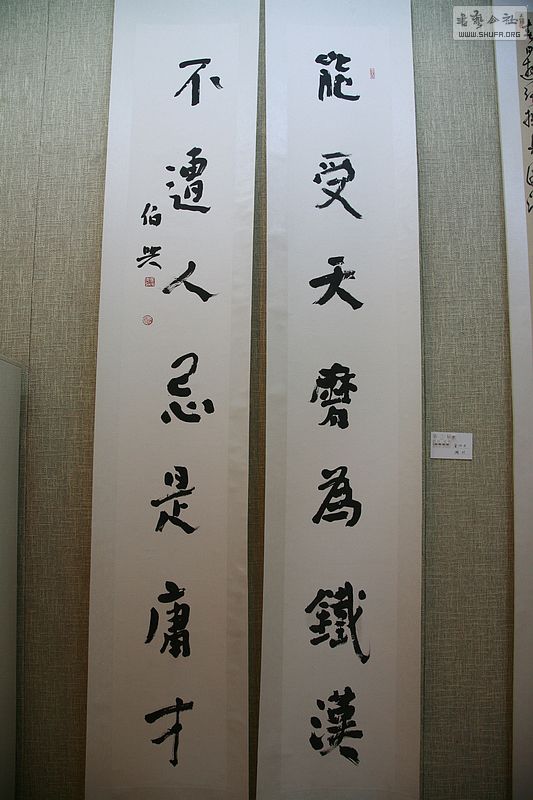 能受天磨為鐵漢
不遭人忌是庸才
伯興
书艺公社
WWW.SHUFA.ORG